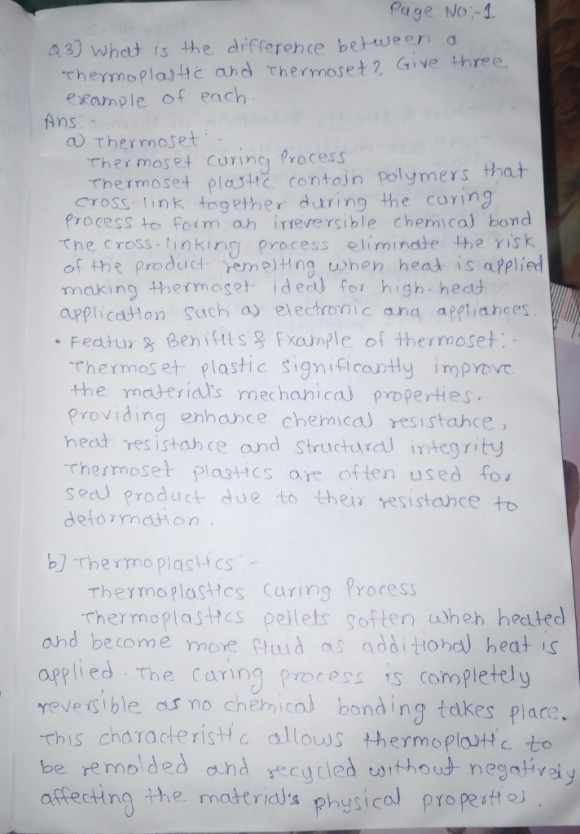 Page No:-1
Q3] What is the difference between a
Thermoplastic and Thermoset? Give three
example of each.
Ans:-
a) Thermoset:-
Thermoset Curing Process
Thermoset plastic contain polymers that
cross link together during the curing
process to form an irreversible chemical bond
The cross-linking process eliminate the risk
of the product remelting when heat is applied
making thermoset ideal for high-heat
application such as electronic and appliances.
• Featur & Benifits & Example of thermoset:-
Thermoset plastic significantly improve
the material's mechanical properties.
Providing enhance chemical resistance,
heat resistance and structural integrity.
Thermoset plastics are often used for
seal product due to their resistance to
deformation.
b] Thermoplastics:-
Thermoplastics Curing Process
Thermoplastics pellets soften when heated
and become more fluid as additional heat is
applied. The curing process is completely
reversible as no chemical bonding takes place.
This characteristic allows thermoplastic to
be remolded and recycled without negatively
affecting the material's physical properties.